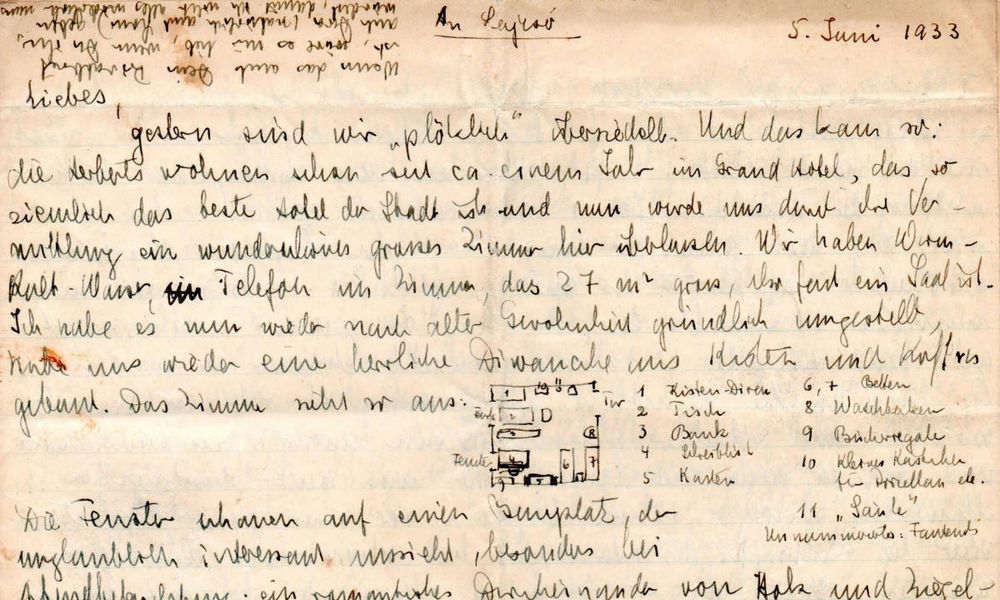 An
5. Juni 1933
Wenn das auch Dein
ist, wäre es mir lieb, wenn Du ihn
auch Dion (natürlich auch Hom) geben
würdest, damit ich nicht alles
Liebes,
gestern sind wir „plötzlich“ übersiedelt. Und das kam so:
die Herberts wohnen schon seit ca. einem Jahr im Grand Hotel, das so
ziemlich das beste Hotel der Stadt ist und nun wurde uns durch ihre Ver-
mittlung ein wunderschönes grosses Zimmer hier überlassen. Wir haben Warm-
Kalt-Wasser, Telefon im Zimmer, das 27 m² gross also fast ein Saal ist.
Ich habe es nun wieder nach alter Gewohnheit gründlich umgestellt,
habe uns wieder eine herrliche aus Kisten und Koffern
gebaut. Das Zimmer sieht so aus:
Tür
Fenster
1 Kisten-Diwan
2 Tisch
3 Bank
4 Schreibtisch
5 Kasten
6, 7 Betten
8 Waschbecken
9 Bücherregale
10 Kleines Kästchen
für Porzellan etc.
11 „Säule“
Unnummeriertes: Fauteuils
Die Fenster schauen auf einen Bauplatz, der
unglaublich interessant aussieht, besonders bei
Abendbeleuchtung: ein romantisches Durcheinander von Holz und Ziegel-